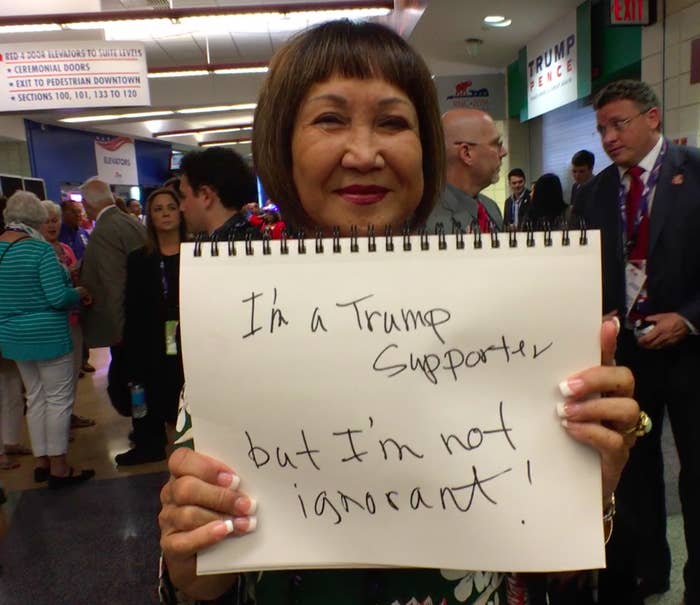 RED 4 DOOR ELEVATORS TO SUITE LEVELS
• CEREMONIAL DOORS
• EXIT TO PEDESTRIAN DOWNTOWN
• SECTIONS 100, 101, 133 TO 120
ELEVATORS
TRUMP
PENCE
EXIT
I'm a Trump
Supporter
but I'm not
ignorant!